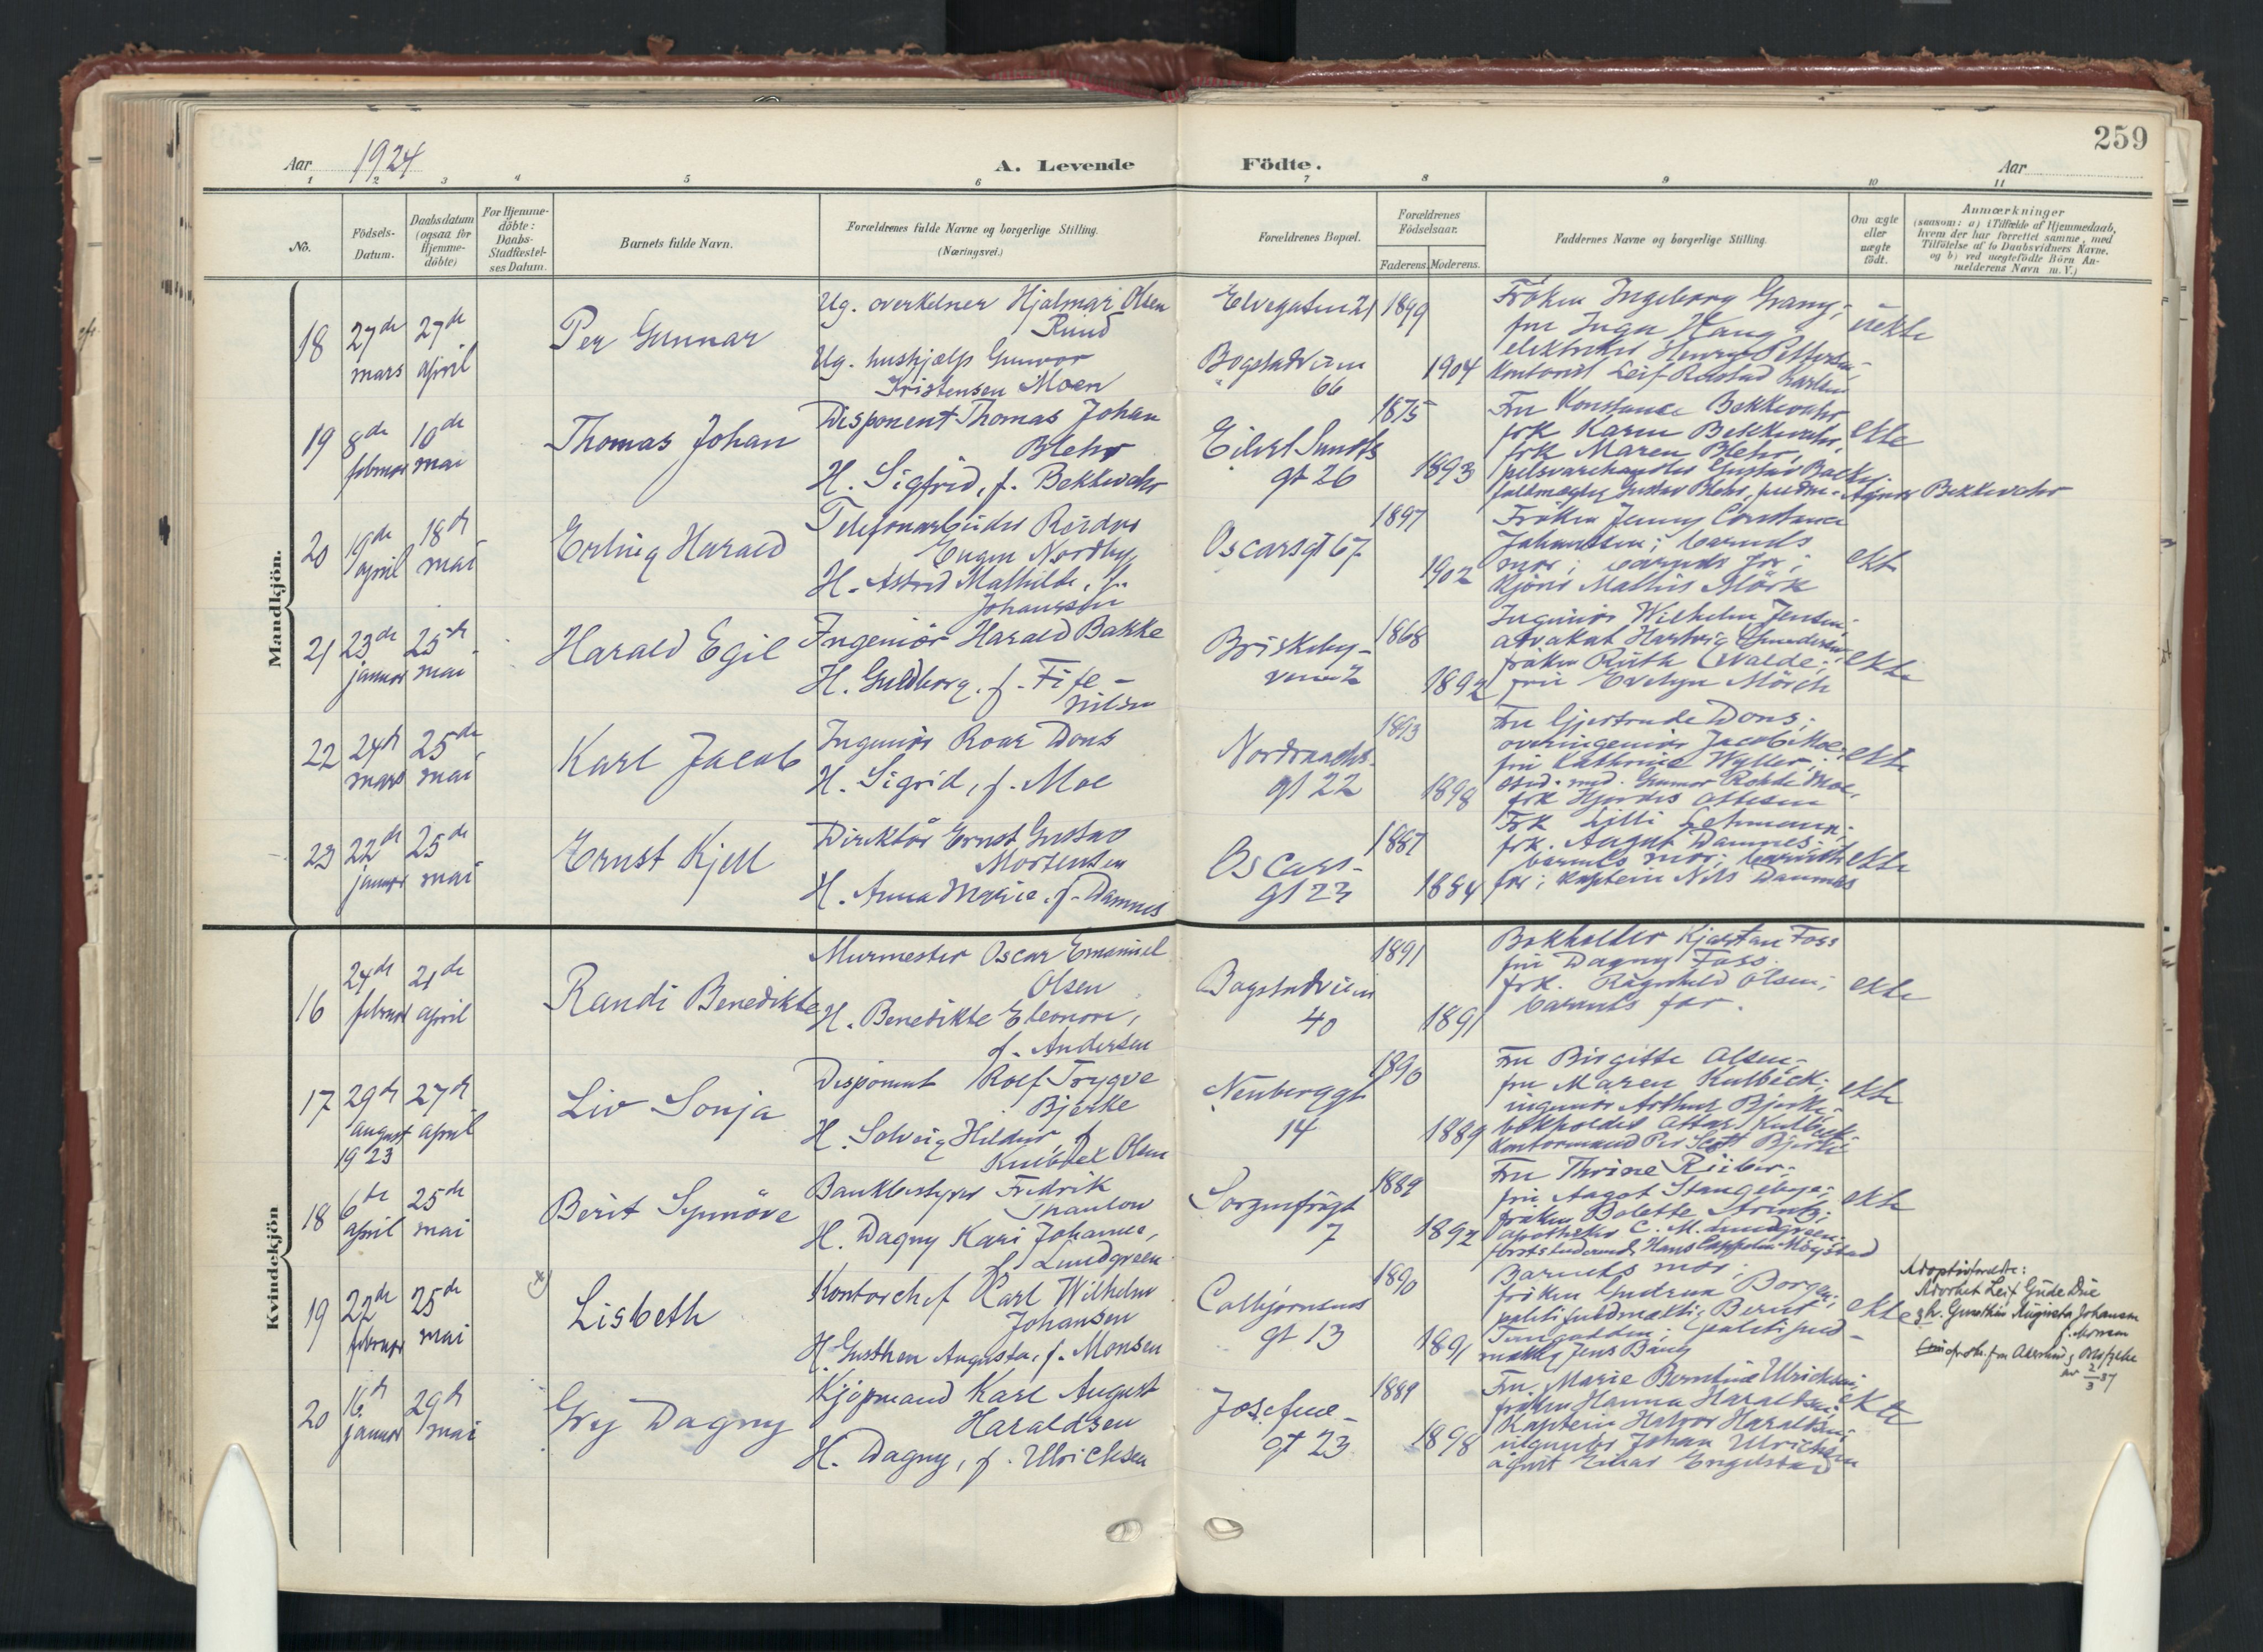 259
Aar 1924
A. Levende Födte.
Aar
1 2 3 4 5 6 7 8 9 10 11
No.
Födsels-
Datum.
Daabsdatum
(ogsaa for
Hjemme-
döbte)
For Hjemme-
döbte:
Daabs-
Stadfæstel-
ses Datum.
Barnets fulde Navn.
Forældrenes fulde Navne og borgerlige Stilling.
(Næringsvei.)
Forældrenes Bopæl.
Forældrenes
Födselsaar.
Faderens. Moderens.
Faddernes Navne og borgerlige Stilling
Om ægte
eller
uægte
födt.
Anmærkninger
(saasom: a) i Tilfælde af Hjemmedaab,
hvem der har forrettet samme, med
Tilföielse af to Daabsvidners Navne.
og b) ved uægtefödte Börn An-
melderens Navn m. V.)
Mandkjön.
18
27de
mars
27de
april
Per Gunnar
Ug. overkelner Hjalmar Olsen
Ruud
Ug. hushjælp Gunvor
Kristensen Moen
Elvegaten 21
Bogstadveien
66
1899
1904
Frøken Ingeborg Grang;
fru Inga Haug
elektriker Henry Pettersen;
kontorist Leif Rustad Karlsen
uekte
19
8de
februar
10de
mai
Thomas Johan
Disponent Thomas Johan
Blehr
H. Sigfrid, f. Bekkevahr
Eilert Sundts
gt 26
1875
1893
Fru Konstance Bekkevahr
frk Karen Bekkevahr,
frk Maren Blehr,
pelsvarehandler Gustav Backer
fuldmægtig Gustav Blehr, Agnar Bekkevahr
ekte
20
19de
april
18de
mai
Erling Harald
Telefonarbeider Reidar
Eugen Nordby
H. Astrid Mathilde, f.
Johanssen
Oscarsgt 67
1897
1902
Frøken Jenny Constance
Johanssen; barnets
mor; barnets far;
Mathis Mörk
ekte
21
23de
januar
25de
mai
Harald Egil
Ingeniör Harald Bakke
H. Guldborg, f. Fife-
nilsen
Briskeby-
veien
1868
1892
Ingeniör Wilhelm Jensen;
advokat Hartvig
frøken Ruth Walde;
fru Evelyn Mörch
ekte
22
24de
mars
25de
mai
Karl Jacob
Ingeniör Roar Dons
H. Sigrid, f. Moe
Nordraachs
gt 22
1893
1898
Fru Gjertrude Dons;
overingeniör Jacob Moe;
fru Kathrine Wyller;
stud. med. Gunnar Rohde Moe,
frk Hjördis Ottesen
ekte
23
22de
januar
25de
mai
Ernst Kjell
Direktör Ernst Gustav
Mortensen
H. Anna Marie, f. Damnes
Oscars-
gt 23
1887
1884
Frk Lilli Lehmann;
frk. Aagot Damnes;
barnets mor; barnets
far; kaptein Nils Damnes
ekte
Kvindekjön
16
24de
februar
21de
april
Randi Benedikte
Murmester Oscar Emanuel
Olsen
H. Benedikte Eleonore,
f. Andersen
Bogstadveien
40
1891
1891
Bokholder Kjartan Foss
fru Dagny Foss.
frk. Ragnhild Olsen;
barnets far.
ekte
17
29de
august
1923
27de
april
Liv Sonja
Disponent Rolf Trygve
Bjerke
H. Solveig Hildur, f
Kulbeck Olsen
Neuberggt
14
1890
1889
Fru Birgitte Olsen;
fru Maren Kulbeck;
ingeniör Arthur Bjerke;
bokholder Ottar Kulbeck;
kontormand Per Scott Bjerke
ekte
18
6te
april
25de
mai
Berit Synnöve
Bankbestyrer Fredrik
Thaulow
H. Dagny Kari Johanne,
f Lundgreen
Sorgenfrigt
7
1889
1892
Fru Thrine Riiber;
fru Aagot Stangebye;
frøken Bolette Strintz;
apotheker C. M. Lundgreen;
forststuderende Hans Cappelen Mögstad
ekte
19
22de
februar
25de
mai
Lisbeth
Kontorchef Karl Wilhelm
Johansen
H. Gusthen Augusta, f. Monsen
Colbjørnsens
gt 13
1890
1891
Barnets mor;
frøken Gudrun Borgen;
politifuldmektig Bernt
politifuld-
mektig Jens Bang
ekte
Adoptivforeldre:
Advokat Leif Gude Due
og h. Gusthen Augusta Johansen
f. Monsen
av 2/3 37
20
16de
januar
29de
mai
Gry Dagny
Kjöpmand Karl August
Haraldsen
H. Dagny, f. Ulrichsen
Josefine-
gt 23
1889
1898
Fru Marie Berntine Ulrichsen;
frøken Hanna Haraldsen;
Kaptein Halvor Haraldsen;
ingeniör Johan Ulrichsen
agent Einar Engelstad
ekte